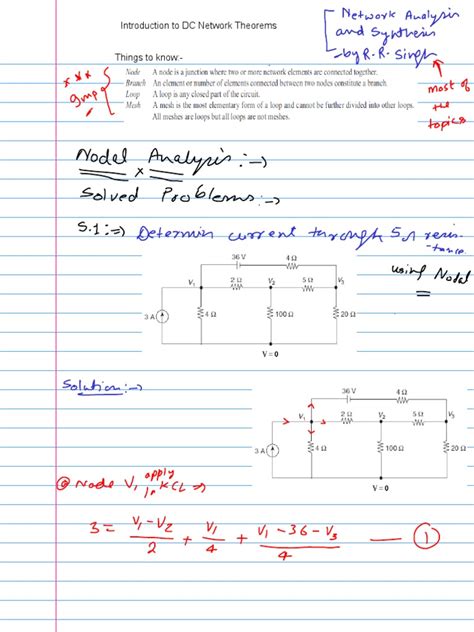 Introduction to DC Network Theorems
Network Analysis
and Synthesis
-by R.R. Singh
most of
the
topics
Things to know:-
Gmp
Node A node is a junction where two or more network elements are connected together.
Branch An element or number of elements connected between two nodes constitute a branch.
Loop A loop is any closed part of the circuit.
Mesh A mesh is the most elementary form of a loop and cannot be further divided into other loops.
All meshes are loops but all loops are not meshes.
Nodal Analysis :→
Solved Problems :→
S.1 :⇒ Determin current through 5Ω resis-
tance
using Nodal
36 V 4 Ω
V₁ 2 Ω V₂ 5 Ω V₃
3 A 4 Ω 100 Ω 20 Ω
V = 0
Solution :→
36 V 4 Ω
V₁ 2 Ω V₂ 5 Ω V₃
3 A 4 Ω 100 Ω 20 Ω
V = 0
@ Node V₁ apply KCL ⇒
3 = V₁-V₂/2 + V₁/4 + V₁-36-V₃/4 — ①